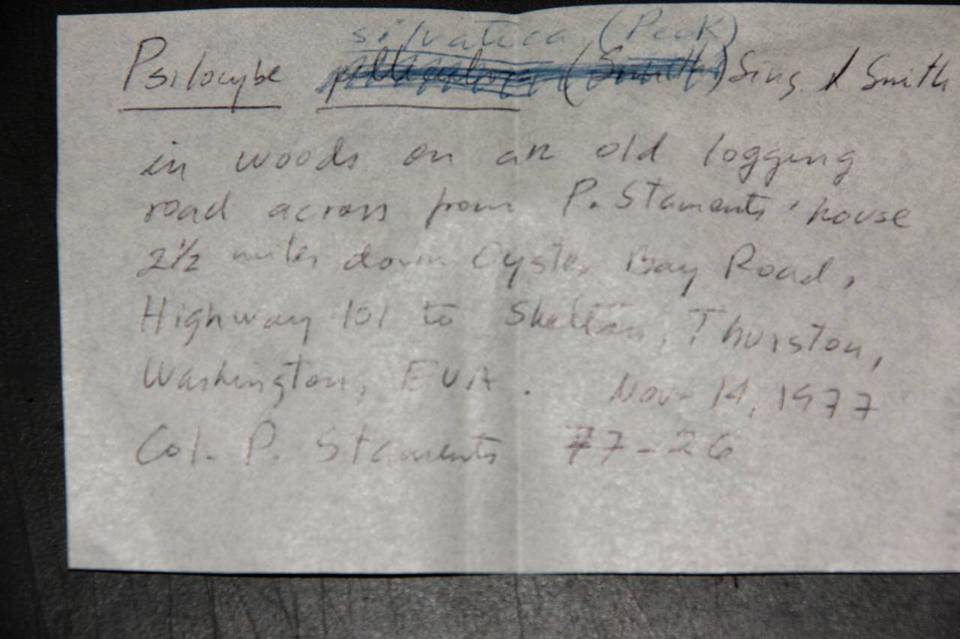 silvatica (Peck)
Psilocybe (Smith) Sing. & Smith
in woods on an old logging
road across from P. Staments' house
2½ miles down Oyster Bay Road,
Highway 101 to Shelton, Thurston,
Washington, EUA. Nov- 14, 1977
Col. P. Staments 77-26